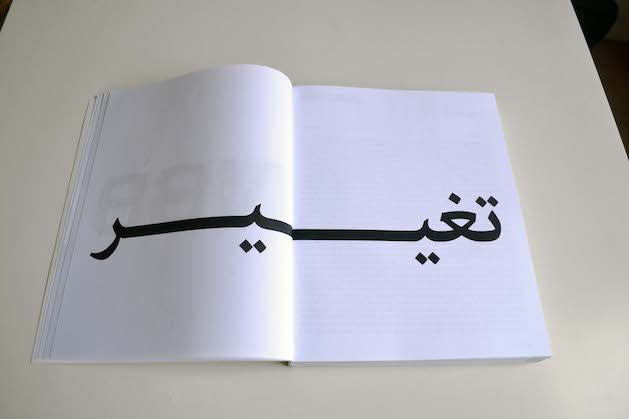 تغيير